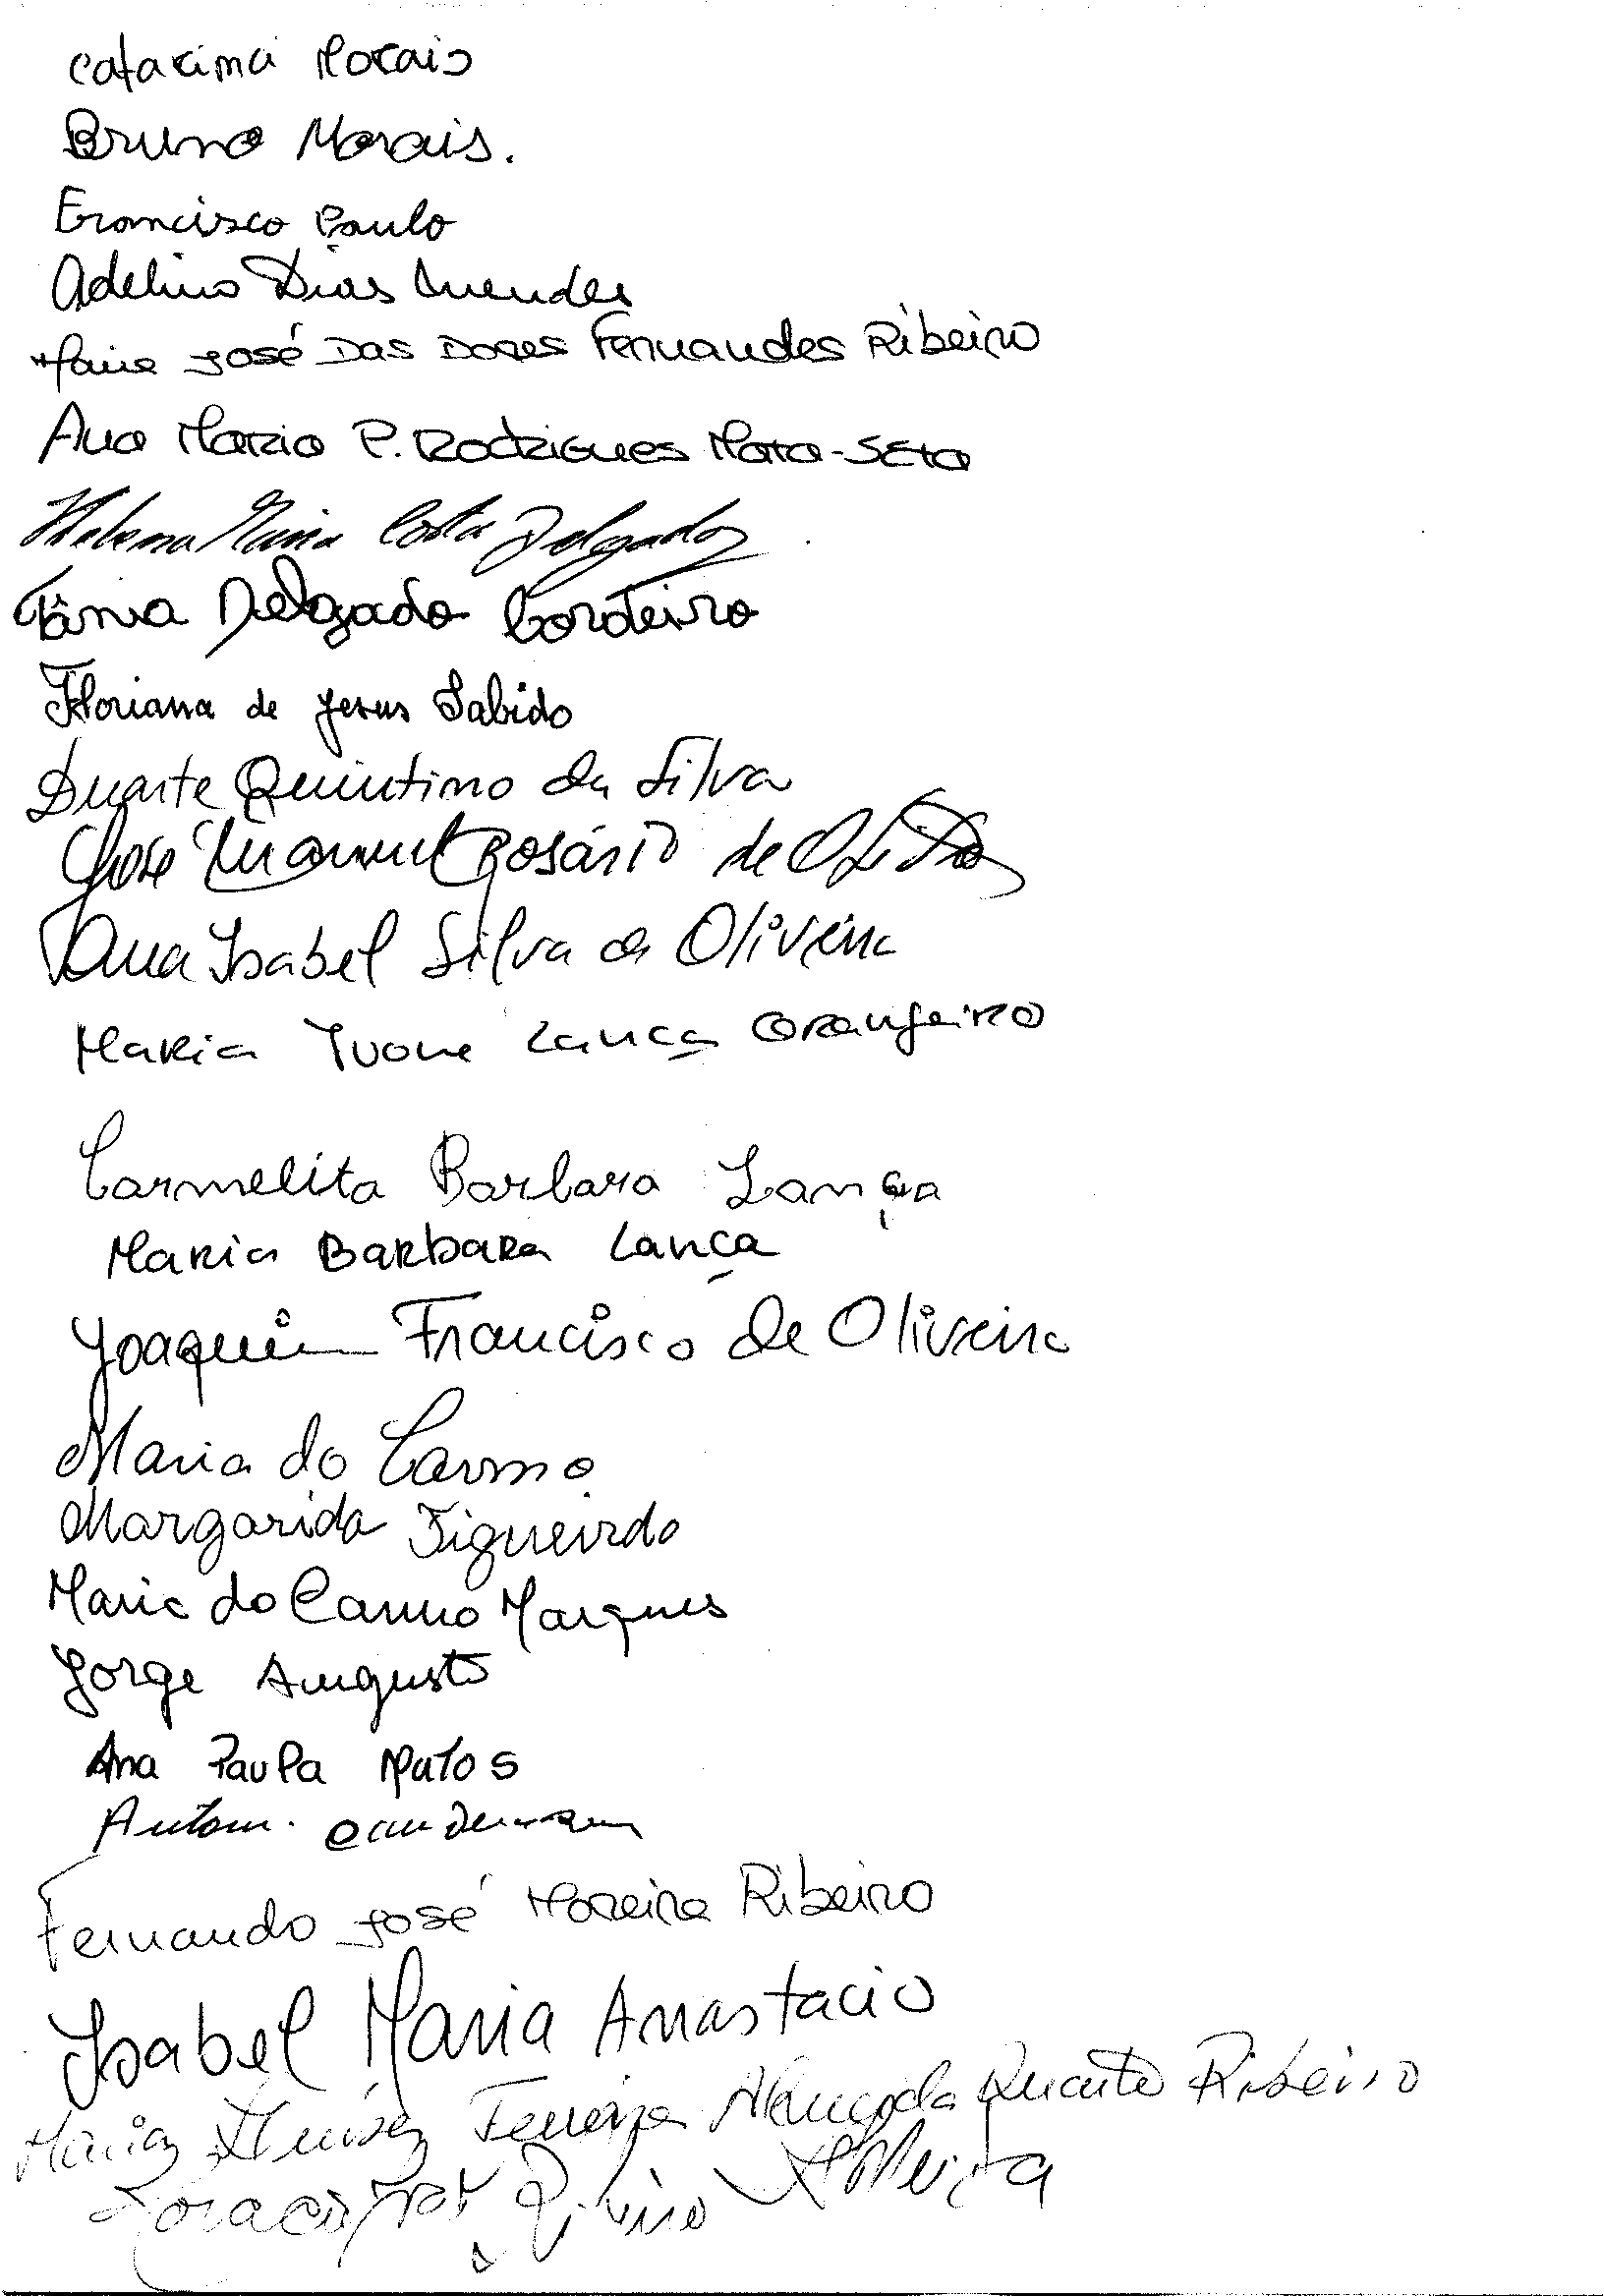 Catarina Morais
Bruno Morais.
Francisco Paulo
Adelino Dias Mendes
Maria José Das Dores Fernandes Ribeiro
Ana Maria P. Rodrigues Mata-Seta
Helena Maria Costa Delgado
Tânia Delgado Cordeiro
Floriana de Jesus Sabido
Duarte Quintino da Silva
José Manuel Rosário de
Ana Isabel Silva de Oliveira
Maria Ivone Lança Granjeiro
Carmelita Barbara Lança
Maria Barbara Lança
Joaquim Francisco de Oliveira
Maria do Carmo
Margarida Figueirdo
Maria do Carmo Marques
Jorge Augusto
Ana Paula Matos
Fernando José Moreira Ribeiro
Isabel Maria Anastacio
Maria Luísa Ferreira Duarte Ribeiro
Ribeiro